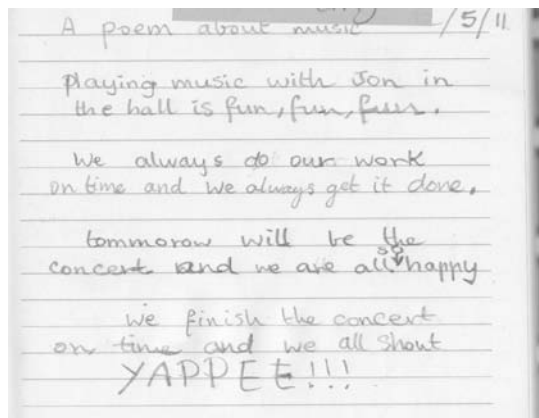 A poem about music
/5/11
Playing music with Jon in
the hall is fun, fun, fun.
We always do our work
on time and we always get it done.
tommorow will be the
concert and we are all so happy
we finish the concert
on time and we all shout
YAPPEE!!!